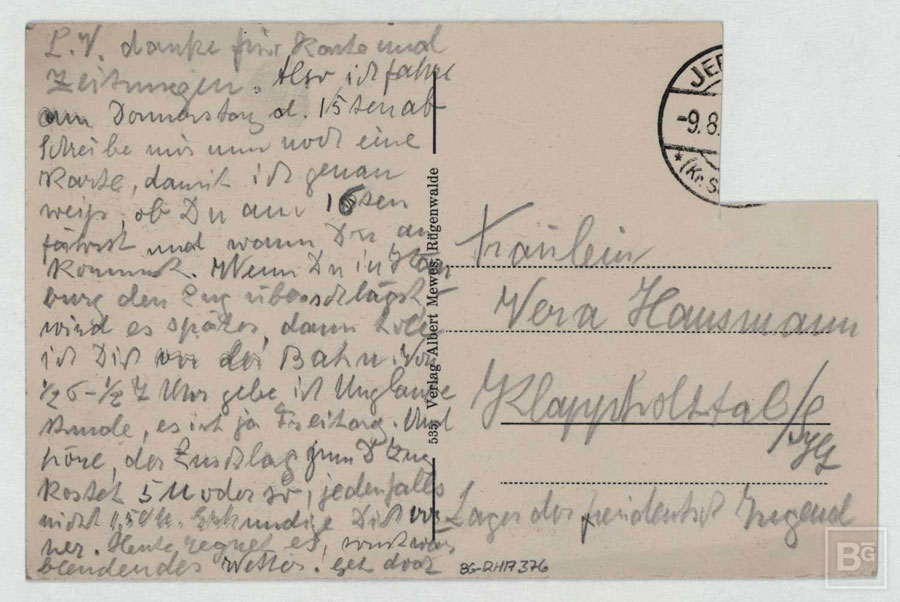 L. V. danke für Karte und
Zeitungen. Also ich fahre
am Donnerstag d. 15ten ab
Schreibe mir nun noch eine
Karte, damit ich genau
weiß, ob Du am 16ten
fährst und wann Du an
kommst. Wenn Du in Ham
burg den Zug überschlägst
wird es später, dann hole
ich Dich von der Bahn. Von
1/2 6 - 1/2 7 Uhr gebe ich
stunde, es ist ja Freitag. Und
höre, der Zuschlag zum D Zug
kostet 5 M oder so, jedenfalls
nicht Erkundige Dich vor
her. Heute regnet es, sonst war
blendendes Wetter. Geh doch
535 Verlag Albert Mewes, Rügenwalde
JER
-9.8.
*(Kr. S
Fräulein
Vera Hausmann
Klappholztal b/
Sylt
Lager der freideutsch Jugend
BG-RHA 376
BG